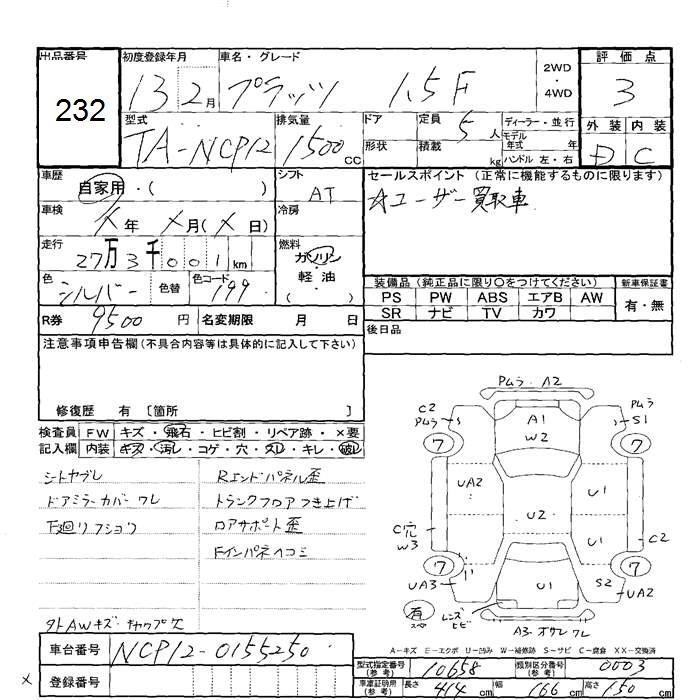 出品番号
232
初度登録年月
13 2月
車名・グレード
プラッツ 1.5F
2WD
・
4WD
評価点
3
型式
TA-NCP12
排気量
1500 CC
ドア
形状
定員
5人
積載
kg
ディーラー・並行
モデル年式 年
ハンドル 左・右
外装 内装
D C
車歴
自家用・( )
シフト
AT
セールスポイント (正常に機能するものに限ります)
☆ユーザー買取車
車検
X年 X月(X日)
冷房
走行
27万3千001km
燃料
ガソリン
軽・油
( )
色
シルバー
色替
色コード
199
装備品 (純正品に限り〇をつけてください)
新車保証書
PS PW ABS エアB AW
SR ナビ TV カワ
有・無
R券 9500円
名変期限 月 日
後日品
注意事項申告欄(不具合内容等は具体的に記入して下さい)
修復歴 有 〔箇所 〕
検査員 FW キズ・飛石・ヒビ割・リペア跡・×要
記入欄 内装 キズ・汚レ・コゲ・穴・スレ・キレ・破レ
シートヤブレ
ドアミラーカバーワレ
下廻リフショク
外AWキズ キャップ欠
Rエンドパネル歪
トランクフロアつき上げ
ロアサポート歪
Fインパネヘコミ
PムラA2
C2
Pムラ
A1
W2
Pムラ
S1
7
7
UA2
U1
U2
C穴
W3
U1
C2
7
7
UA3
U1
S2
UA2
有
スペ
レンズヒビ
A3・オサレワレ
A-キズ E-エクボ U-凹み W-補修跡 S-サビ C-腐食 XX-交換済
車台番号
NCP12-0155250
登録番号
×
型式指定番号
(参考)
10658
類別区分番号
(参考)
0003
車庫証明用
(参考)
長さ 414cm 幅 166cm 高さ 150cm